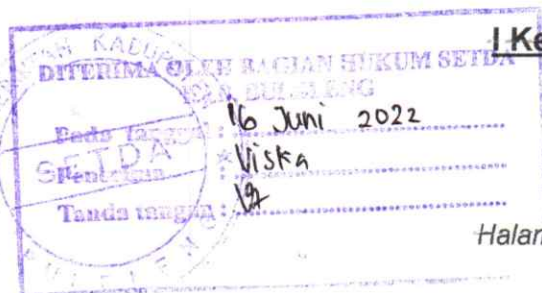 I Ke
DITERIMA OLEH BAGIAN HUKUM SETDA
KAB. BULELENG
Pada tanggal : 16 Juni 2022
Penerima : Viska
Tanda tangan :
SETDA
Halam